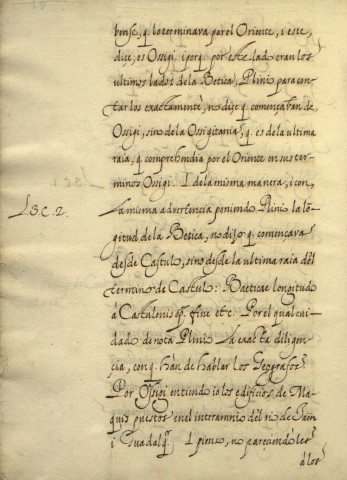 bense, q. lo terminava por el Oriente, i este,
dice, es Ossigi, i porq. por este lado eran los
ultimos lados de la Betica, Plinio para con-
tarlos exactamente, no dice q. començavan de
Ossigi, sino de la Ossigitania, q. es de la ultima
raia, q. comprehendia por el Oriente en sus ter-
minos Ossigi. I de la misma manera, i con,
L. 3. C. 2.
la misma advertencia poniendo Plinio la lõ-
gitud de la Betica, no dijo q. començava
desde Castulo, sino desde la ultima raia del
termino de Castulo: Baeticae longitudo
à Castulonis fine etc. Por el qual cui-
dado denota Plinio la exacta diligen-
çia, con q. hàn de hablar los Geografos.
Por Ossigi entiendo io los edificios de Ma-
quis puestos en el interamnio del rio de Jaen
i Guadalq. I pienso, no pareçiendoles
à los